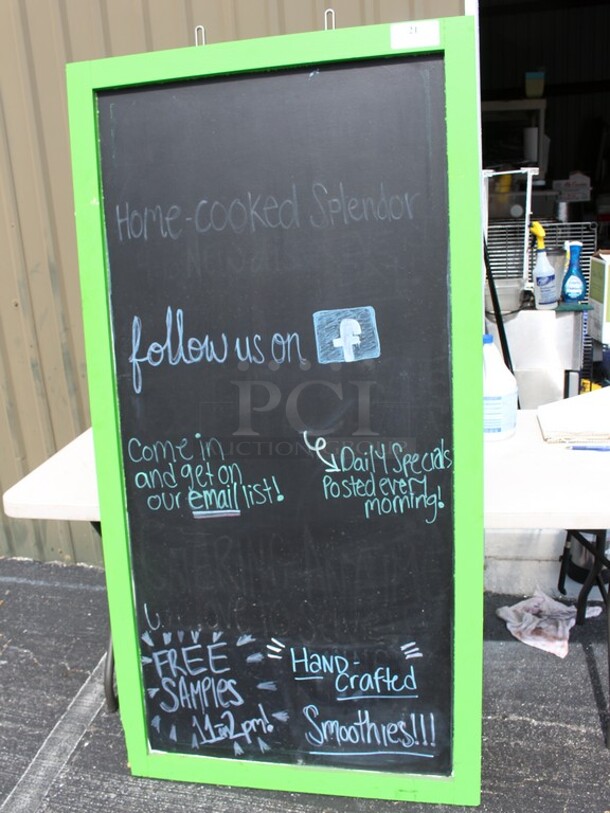 21
Home-cooked Splendor
follow us on f
PCI
Come in
and get on
our email list!
Daily Specials
Posted every
morning!
FREE
SAMPLES
11-2pm!
Hand-
Crafted
Smoothies!!!